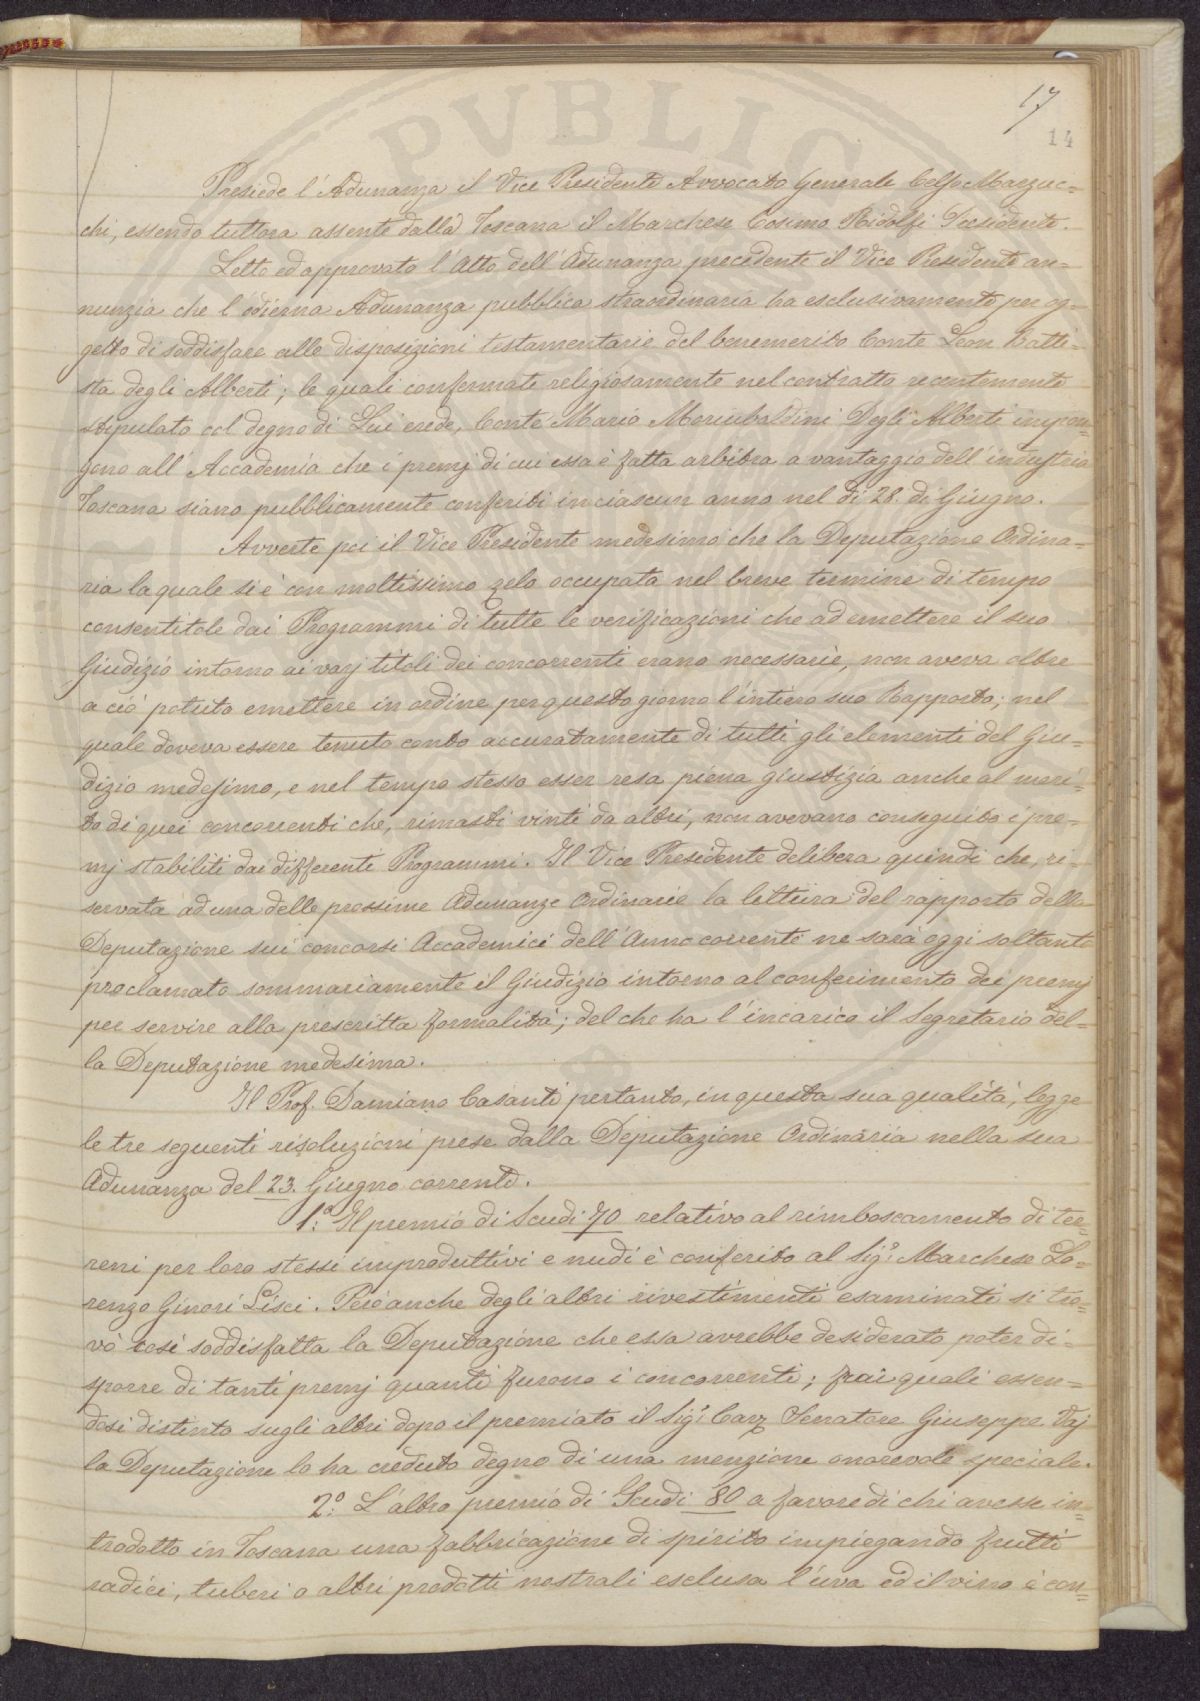 PVBLIC
17
14
Presiede l'Adunanza il Vice Presidente Avvocato Generale Celso Marzuc=
chi, essendo tuttora assente dalla Toscana il Marchese Cosimo Ridolfi Presidente.
Letto ed approvato l'Atto dell'Adunanza precedente il Vice Presidente an=
nunzia che l'odierna Adunanza pubblica straordinaria ha esclusivamente per og=
getto di soddisfare alle disposizioni testamentarie del benemerito Conte Leon Batti=
sta degli Alberti; le quali confermate religiosamente nel contratto recentemente
stipulato col degno di Lui erede, Conte Mario Moriubaldini Degli Alberti impon=
gono all'Accademia che i premj di cui essa è fatta arbitra a vantaggio dell'industria
Toscana siano pubblicamente conferiti in ciascun anno nel dì 28. di Giugno.
Avverte poi il Vice Presidente medesimo che la Deputazione Ordina=
ria la quale si è con moltissimo zelo occupata nel breve termine di tempo
consentitole dai Programmi di tutte le verificazioni che ad emettere il suo
Giudizio intorno ai varj titoli dei concorrenti erano necessarie, non aveva oltre
a ciò potuto emettere in ordine per questo giorno l'intiero suo Rapporto; nel
quale doveva essere tenuto conto accuratamente di tutti gli elementi del Giu=
dizio medesimo, e nel tempo stesso esser resa piena giustizia anche al meri=
to di quei concorrenti che, rimasti vinti da altri, non avevano conseguito i pre=
mj stabiliti dai differenti Programmi. Il Vice Presidente delibera quindi che, ri=
servata ad una delle prossime Adunanze Ordinarie la lettura del rapporto della
Deputazione sui concorsi Accademici dell'Anno corrente ne sarà oggi soltanto
proclamato sommariamente il Giudizio intorno al conferimento dei premj
per servire alla prescritta formalità; del che ha l'incarico il Segretario del=
la Deputazione medesima.
Il Prof. Damiano Casanti pertanto, in questa sua qualità, legge
le tre seguenti risoluzioni prese dalla Deputazione Ordinaria nella sua
Adunanza del 23. Giugno corrente.
1.a Il premio di Scudi 70 relativo al rimboscamento di ter=
reni per loro stessi improduttivi e nudi è conferito al Sig.r Marchese Lo=
renzo Ginori Lisci. Però anche degli altri rivestimenti esaminati si tro=
vò così soddisfatta la Deputazione che essa avrebbe desiderato poter di=
sporre di tanti premj quanti furono i concorrenti; frai quali essen=
dosi distinto sugli altri dopo il premiato il Sig.r Serratore Giuseppe Vaj
la Deputazione lo ha creduto degno di una menzione onorevole speciale.
2.o L'altro premio di Scudi 80 a favore di chi avesse in=
trodotto in Toscana una fabbricazione di spirito impiegando frutti
radici, tuberi o altri prodotti nostrali esclusa l'uva ed il vino è con=